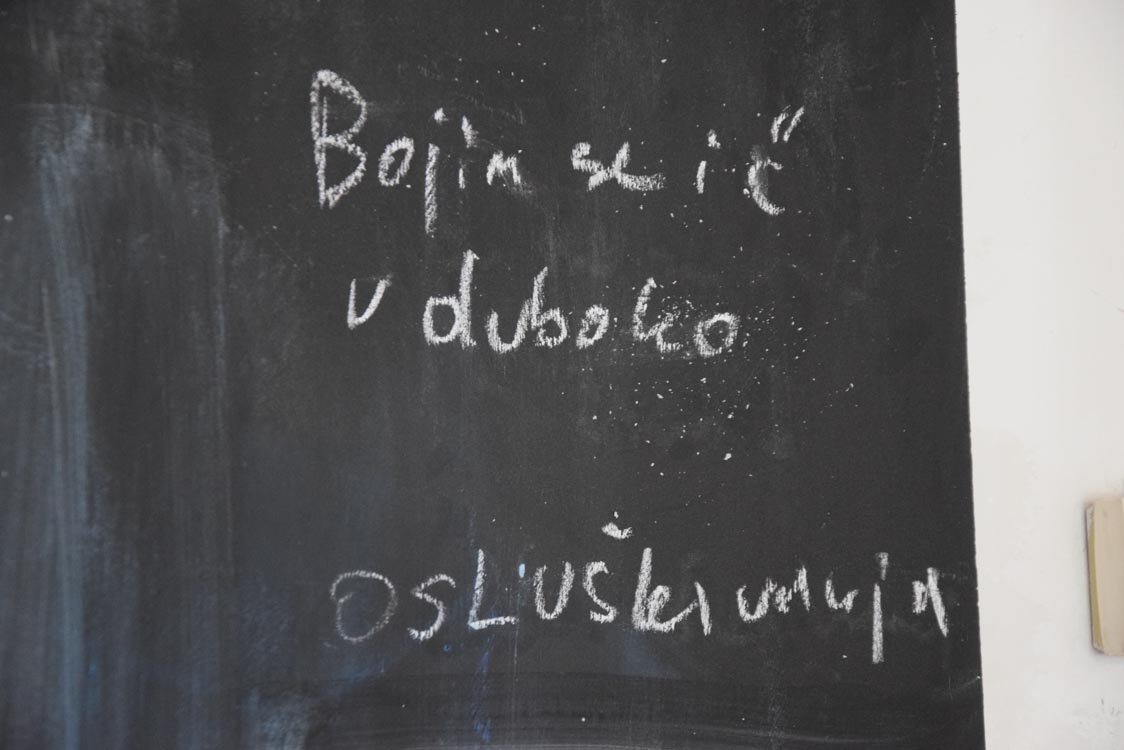 Bojim se ić
u duboko
osLuškivanja